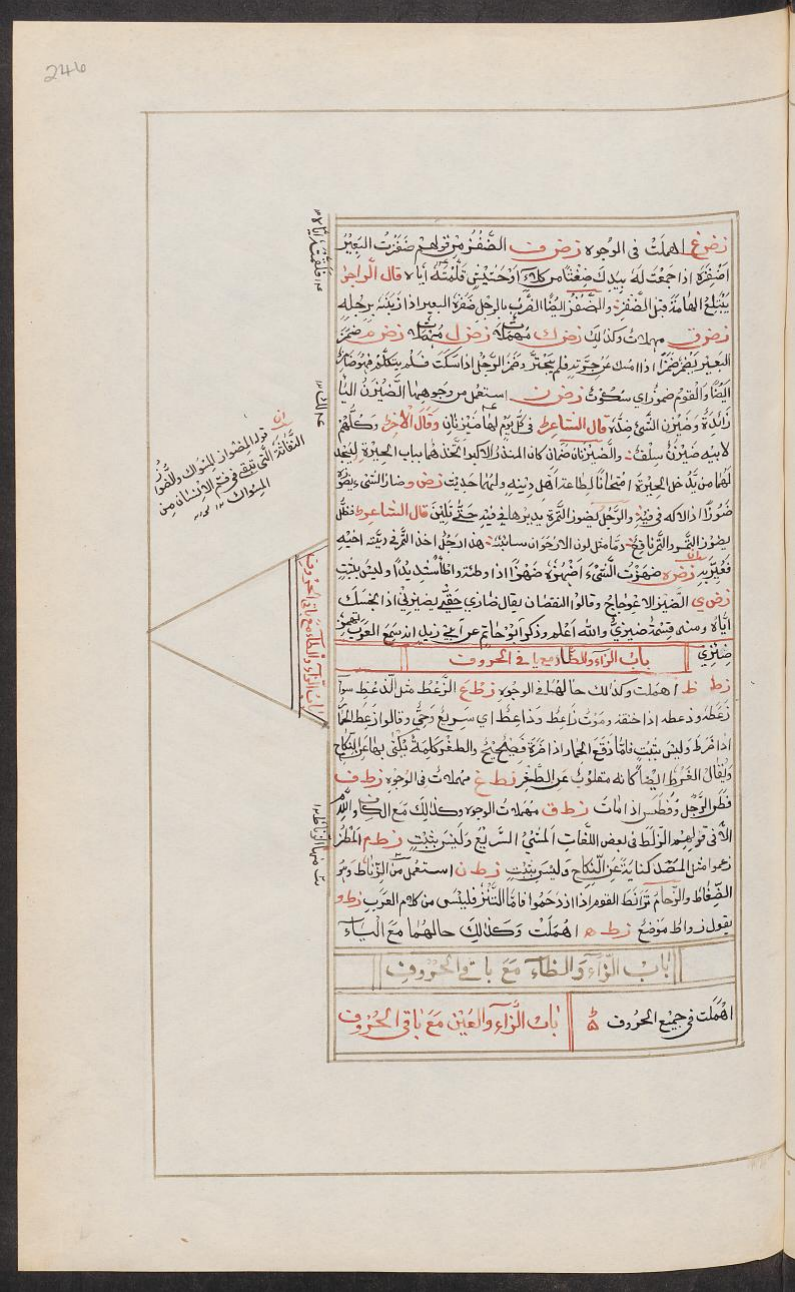 246
زض غ اهملت فى الوجوه زض ف الضّفْز من قولهم ضَفَزْت البَعِيْرُ
اَضْفِزُه اذا جمَعْتَ لهُ بيدك ضِغْثًا من كلاء اَوْحشِيْشٍ فَلَقَّمْتَهُ اِيَّاه قال الراجز
يَبْتَلِعُ الهامَةَ قبْل الضَّفْزِ والضَّفْزُ ايضًا الضَّرْب بالرجل ضَفَزَهُ البعير اذا زَبَنَهُ برجله
زض ق مهملات وكذلك زض ك مُهْمَلَة زض ل مُهْمَلة زض م ضَمَزَ
البَعير يَضْمِزُ ضَمْزًا اذا امسَك عن جِرَّتِه فلم يَجْتَرَّ وضَمَزَ الرَّجُل اذا سَكَتَ فلم يتكلّم فهُوَ ضَامِزٌ
اَيْضًا وَالْقوم ضموزٌ اى سكُوْت زض ن استعمل من وجوههما الضَّيْزَنُ اليا
زَائدةٌ وَضَيْزَن الشَّئ ضدُّه قال الشاعر فى كلّ يَوْم لهُمَا ضَيْزَنَانِ وَقَالَ الْآخر وَكلُّهُمْ
لابيهِ ضَيْزَنٌ سَلِفٌ والضَّيْزَنان صَنَمان كان المنذر الاكبر اتَّخذهُما بباب الحِيْرَةِ ليَسْجُد
لَهُمَا من يَّدخل الحِيْرَة اِمْتحانًا لطاعة اَهل دِيْنِهِ ولهُمَا حَدِيْث زض و ضاز الشئ يَضُوْزُه
ضَوْزًا اذا لاكه فى فِيْهِ والرَّجُل يَضوز التَّمرة يديرها فى فيْهِ حَتَّى تلِيْنَ قال الشاعر فظلَّ
يضُوْز التَّمْر والتَّمْرُ ناقِعٌ وَمَا مثل لون الارجُوَان سبائبُهْ هذا رجُل اخذ التَّمْر فى دِيَة اخيْهِ
فَعُيِّر بِهِ زض ه ضَهَزْت الشَّىْءَ اَضْهَزُهُ ضَهْزًا اذا وطئتهُ وطأً شديْدًا وليسَ بثبتٍ
زض ى الضَّيْز الاعْوِجاج وقالوا النُّقصَان يقال ضازنى حَقِّى يضِيْزُنى اذا بخَسَكَ
اِيَّاه ومنه قِسْمَةٌ ضِيزىٰ والله اَعْلم وذكر اَبُوْ حَاتِم عن ابى زيد انّه سَمِعَ العَرَب تَهْمِزُ
ضِئْزى
بابُ الزّاء والطّاء مع باقى الحروف
زط ظ اهملت وكذلك حالهُمَا فى الوجوه زط ع الزَّعْط مثل الذّعْط سواء
زَعَطَه وذعطه اذا خنقه ومَوْت زَاعِط وَذاعِط اى سَرِيعٌ وَحِىٌّ وقالوا زَعَط الحمَار
اذا ضَرَطَ وليسَ بِثَبْتٍ
زط غ مهملات فى الوجوه زط ف
فَطَزَ الرَّجُل وَفطَس اذا مَاتَ زط ق مُهمَلاتُ الوجوه وكذلك مَع الكاف واللّام
الّا فى قولهم الزَّلَط فى بعض اللُّغات المَشْىُ السَّريْعُ وَليْسَ بثَبْتٍ زط م المَطْزُ
زعموا مثل المَصْد كنايَةٌ عَنِ النِّكَاح وَليسَ بِثَبْتٍ زط ن استعمل مِنَ الزِّنَاط وَهُوَ
الضِّغَاط والزِّحام تَزانَط القوم اذا ازدحَمُوا فامّا الطَّنْز فليسَ من كلام العَرَبِ زط و
يقول زواط موْضعٌ زط ه اهْمَلَتْ وَكذلِكَ حالهُمَا مَعَ اليَاء
بابُ الزّاءِ وَالظّاء مَعَ باقى الحروف
اهْمَلَت فى جميْع الحرُوف ۵ بابُ الزّاء والعَيْن مَعَ باقى الحُرُوف
باب الزّاء والطاء مَعَ باقى الحرُوف
قوله المِضْوَاز المِسْوَاك والضُّوَازُ
النُّفَاثَة الَّتى تبقى فى فَم الاِنسَان مِن
المِسْوَاك